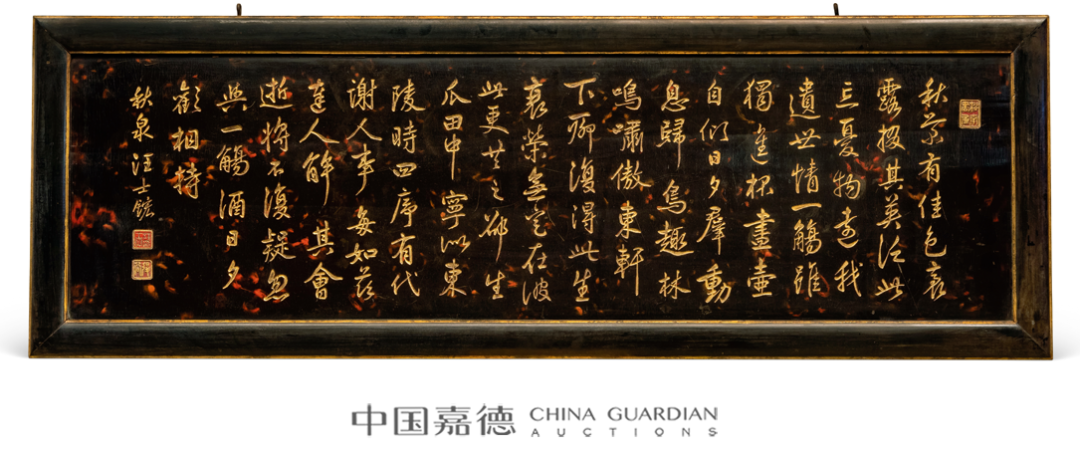 秋菊有佳色裛
露掇其英泛此
忘憂物遠我
遺世情一觴雖
獨進杯盡壺
自傾日夕羣動
息歸鳥趣林
鳴嘯傲東軒
下聊復得此生
衰榮無定在彼
此更共之邵生
瓜田中寧似東
陵時四序有代
謝人事每如茲
達人解其會
逝將不復疑忽
與一觴酒日夕
歡相持
秋泉汪士鋐
中国嘉德 CHINA GUARDIAN
AUCTIONS